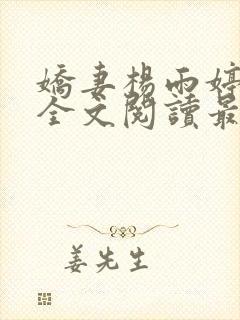 嬌妻楊雨婷
全文閱讀最
姜先生